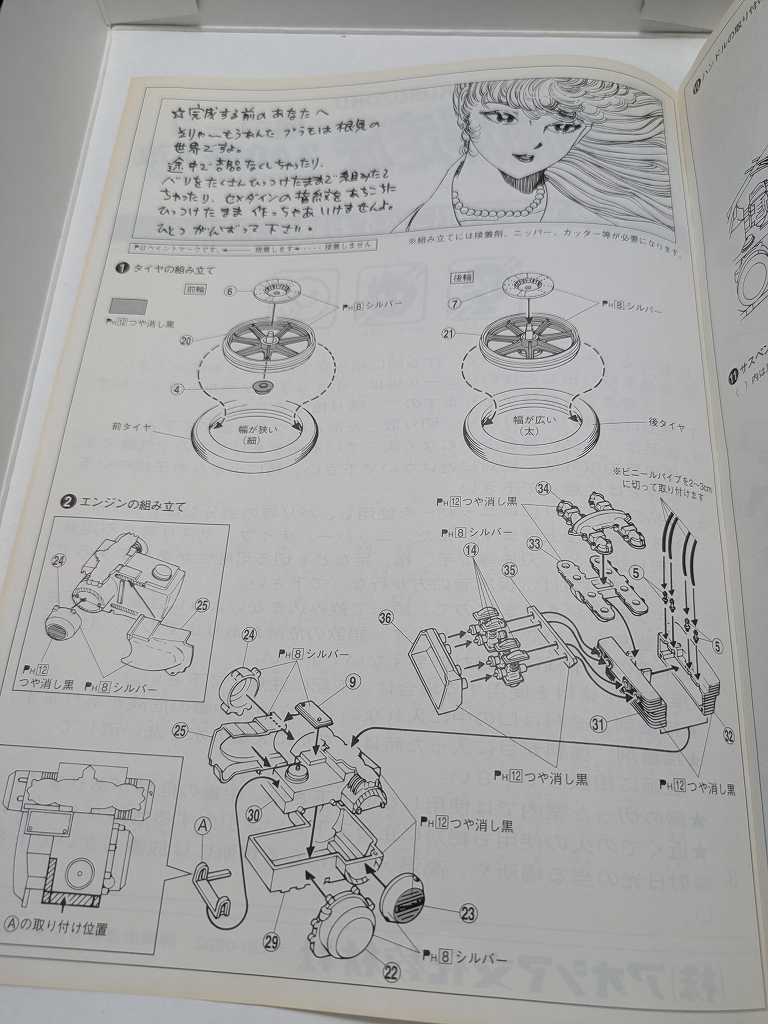 ☆完成する前のあなたへ
そりゃーもうあんた プラモは根気の
世界ですよ。
途中で部品なくしちゃったり、
バリをたくさんひっつけたままで組みたて
ちゃったり、セメダインの指紋をあちこちに
ひっつけたまま作っちゃあいけませんよ。
ひとつ がんばって下さい。
はペイントマークです。 接着します 接着しません
※組み立てには接着剤、ニッパー、カッター等が必要になります。
1 タイヤの組み立て
前輪
6
PH8シルバー
PH12つや消し黒
20
4
前タイヤ
幅が狭い
(細)
後輪
7
PH8シルバー
21
幅が広い
(太)
後タイヤ
2 エンジンの組み立て
24
25
PH12
つや消し黒
PH8シルバー
※ビニールパイプを2〜3cm
に切って取り付けます
34
PH12つや消し黒
PH8シルバー
33
14
35
5
5
36
31
32
PH12つや消し黒
PH12つや消し黒
24
PH8シルバー
9
25
30
A
PH12つや消し黒
29
23
22
PH8シルバー
Aの取り付け位置
10 ハンドルの取り付
11 サスペン